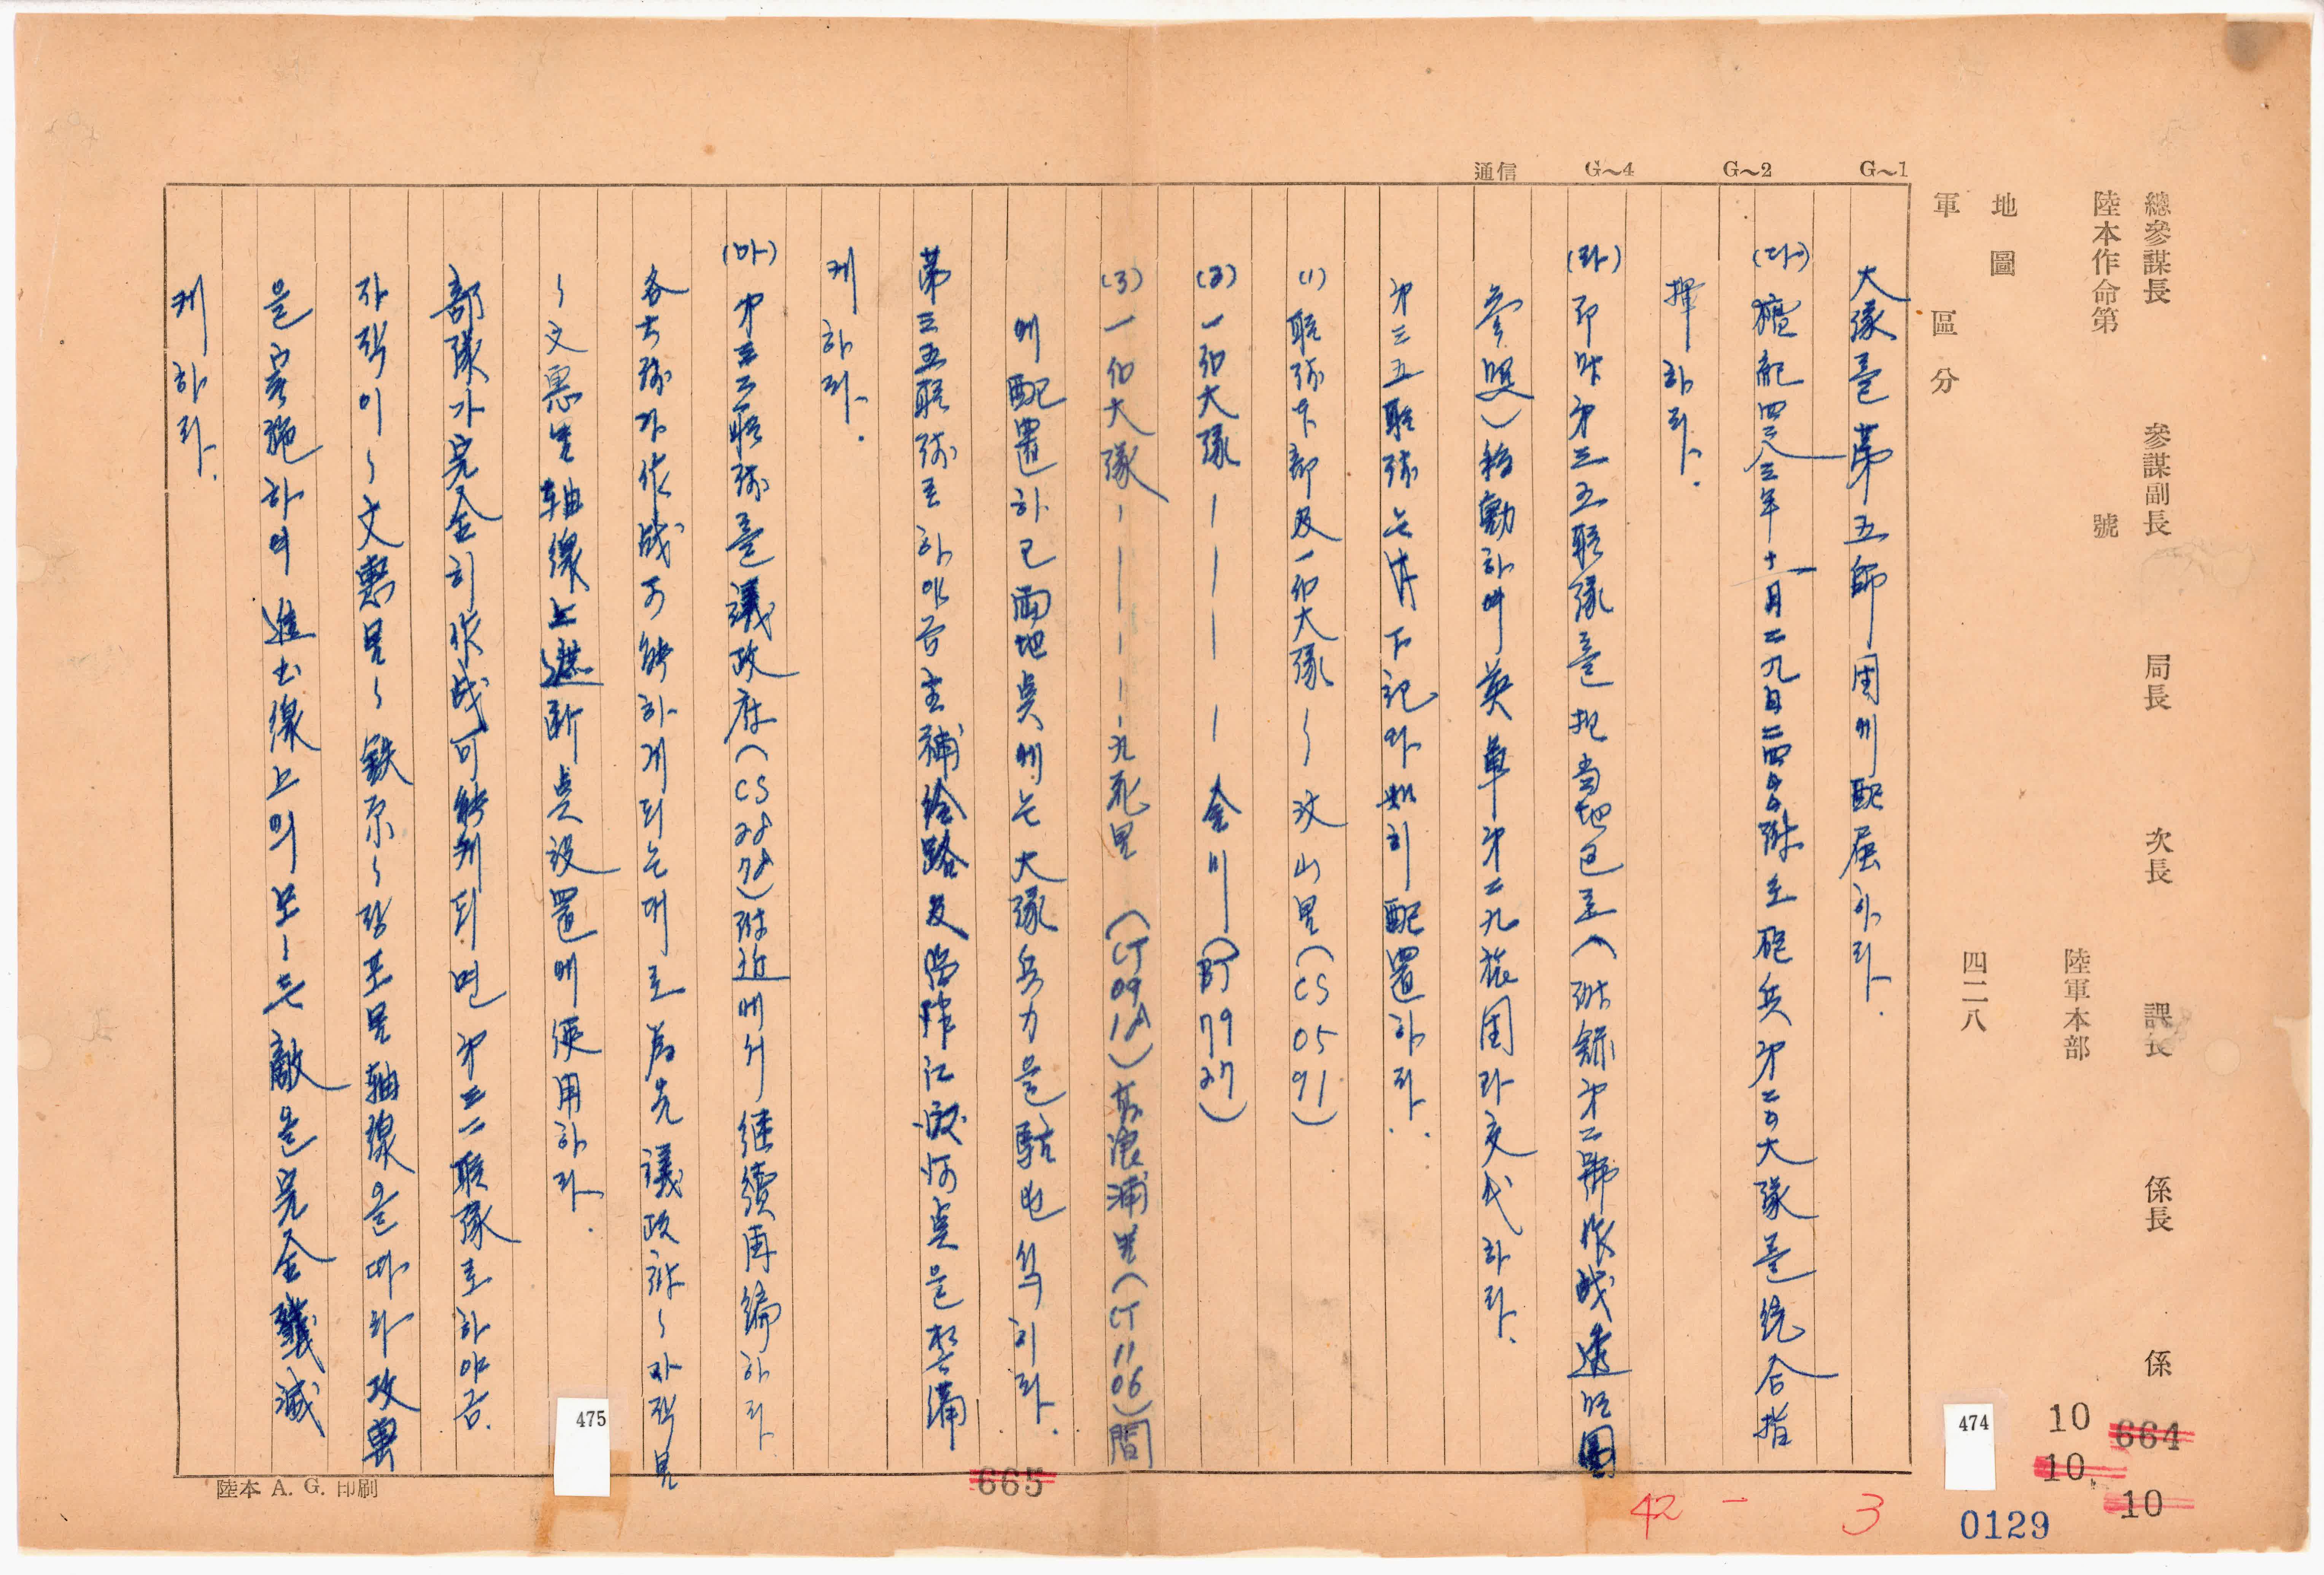 總參謀長 參謀副長 局長 次長 課長 係長 係
陸本作命第 號
陸軍本部
地圖
四二八
軍區分
G~1
G~2
G~4
通信
大隊를 第五師團에 配屬하라.
(다) 檀紀四二八三年十一月二九日二四〇〇附로 砲兵第二〇大隊를 統合指
揮하라.
(라) 即時 第三五聯隊를 担当地區로(附錄第二號作戰透明圖
參照) 移動하여 英軍第二九旅團과 交代하라.
第三五聯隊는 下記와 如히 配置하라.
(1) 聯隊本部及一個大隊~汶山里(CS0591)
(2) 一個大隊 ———— 金川(BT7927)
(3) 一個大隊 ———— 九死里 (CT0918) 高浪浦里(CT1106)間
에 配置하고 両地點에는 大隊兵力을 駐屯식히라.
第三五聯隊로 하야금 主補給路及臨津江渡河點을 警備
케하라.
(마) 第三二聯隊를 議政府(CS2878)附近에서 継續再編하라
各大隊가 作戰可能하게 되는대로 爲先 議政府~자작里
~文惠里 軸線上 遮斷點設置에 使用하라.
部隊가 完全히 作戰可能케 되면 第三二聯隊로 하야금.
자작이~文惠里~鉄原~장포里 軸線을 따라 攻擊
을 実施하여 進出線上의 모~든 敵을 完全殲滅
케하라.
陸本 A. G. 印刷
475
665
474
10
664
10
10
42 - 3
0129